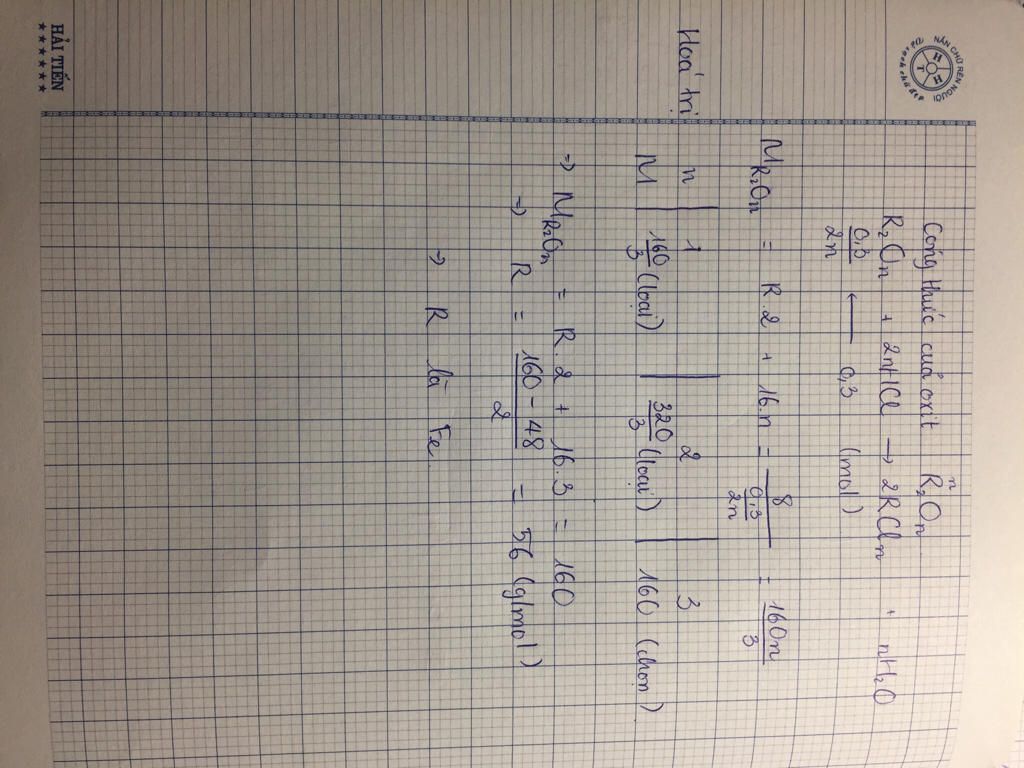 NẮN CHỮ RÈN NGƯỜI
HẢI TIẾN
Công thức của oxit R₂ⁿOₙ
R₂Oₙ + 2nHCl → 2RClₙ + nH₂O
0,3/2n ← 0,3 (mol)
M_R₂Oₙ = R.2 + 16.n = 8/(0,3/2n) = 160n/3
Hoá trị n | 1 | 2 | 3
M | 160/3 (loại) | 320/3 (loại) | 160 (chọn)
=> M_R₂Oₙ = R.2 + 16.3 = 160
=> R = (160-48)/2 = 56 (g/mol)
=> R là Fe.